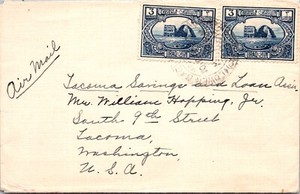 3 3
Air Mail
Tacoma Savings and Loan Assn
Mr. William Hopping, Jr.
South 9th Street
Tacoma,
Washington,
U. S. A.